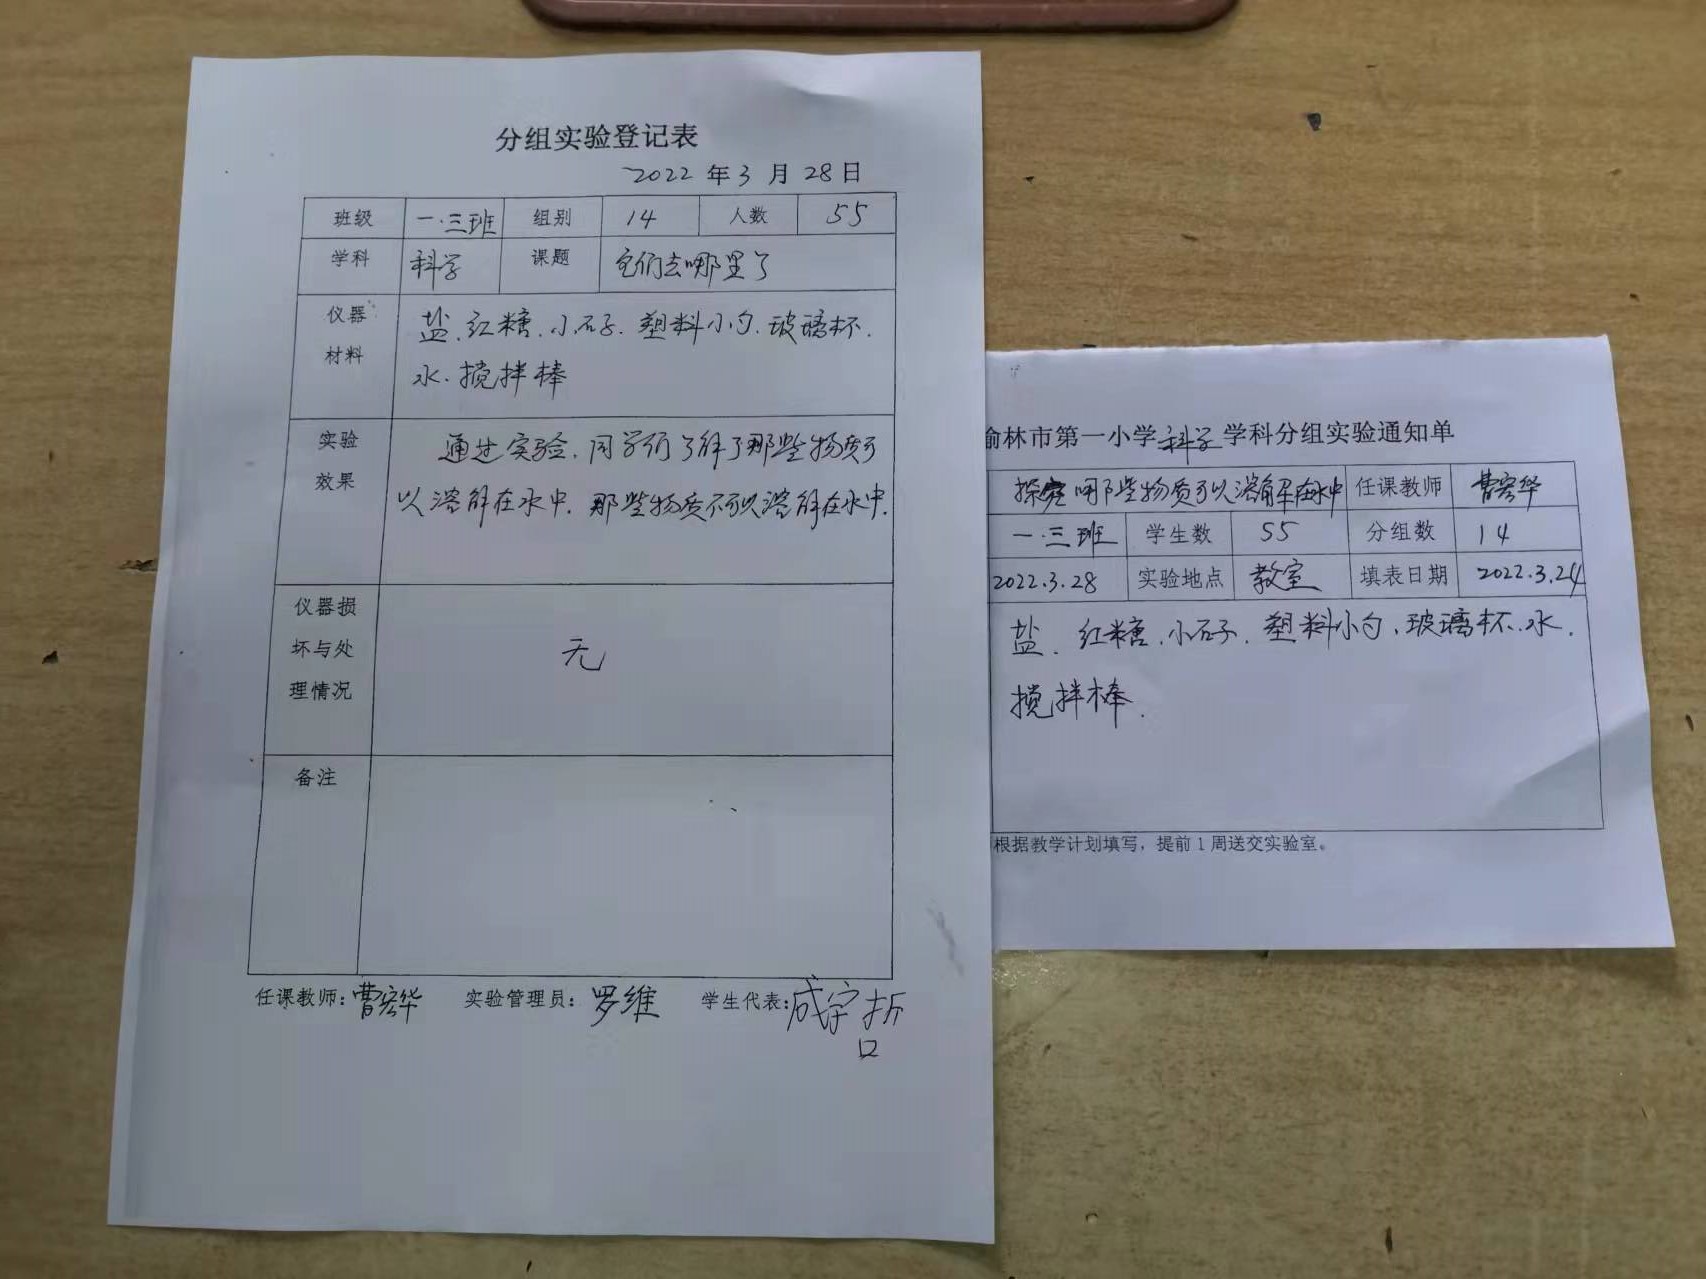 分组实验登记表
2022 年 3 月 28 日
班级 一.三班 组别 14 人数 55
学科 科学 课题 它们去哪里了
仪器 盐、红糖、小石子、塑料小勺、玻璃杯、
材料 水、搅拌棒
实验 通过实验,同学们了解了那些物质可
效果 以溶解在水中,那些物质不可以溶解在水中.
仪器损
坏与处 无
理情况
备注
任课教师:曹宏华 实验管理员:罗维 学生代表:成宇哲
榆林市第一小学科学学科分组实验通知单
探究哪些物质可以溶解在水中 任课教师 曹宏华
一.三班 学生数 55 分组数 14
2022.3.28 实验地点 教室 填表日期 2022.3.24
盐、红糖、小石子、塑料小勺、玻璃杯、水、
搅拌棒.
根据教学计划填写,提前1周送交实验室。